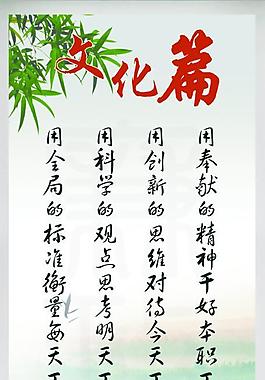 文化篇
用奉献的精神干好本职
用创新的思维对待今天
用科学的观点思考明天
用全局的标准衡量每天